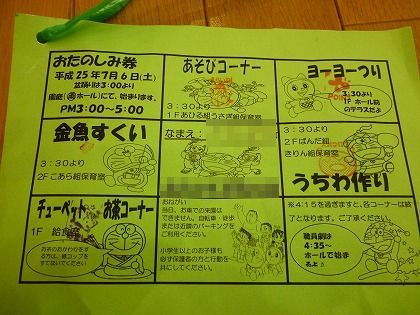 おたのしみ券
平成25年7月6日(土)
盆踊りは3:00より
園庭(雨ホール)にて、始まります。
PM3:00～5:00
あそびコーナー
3:30より
1Fあひる組うさぎ組保育室
ヨーヨーつり
3:30より
1F ホール前
のテラスだよ
金魚すくい
3:30より
2Fこあら組保育室
なまえ:
3:30より
2Fぱんだ組
きりん組保育室
うちわ作り
チューペット
お茶コーナー
1F 給食室
お茶のおかわりをす
る方は、紙コップを
すてないでください。
おねがい
当日、お車での来園は
できません。自転車・徒歩
または近隣のパーキングを
ご利用ください。
小学生以上のお子様も
必ず保護者の方と行動を
共にしてください。
*4:15を過ぎますと、各コーナーは終
了となります。ご了承ください。
職員劇は
4:35～
ホールで始ま
るよ♪